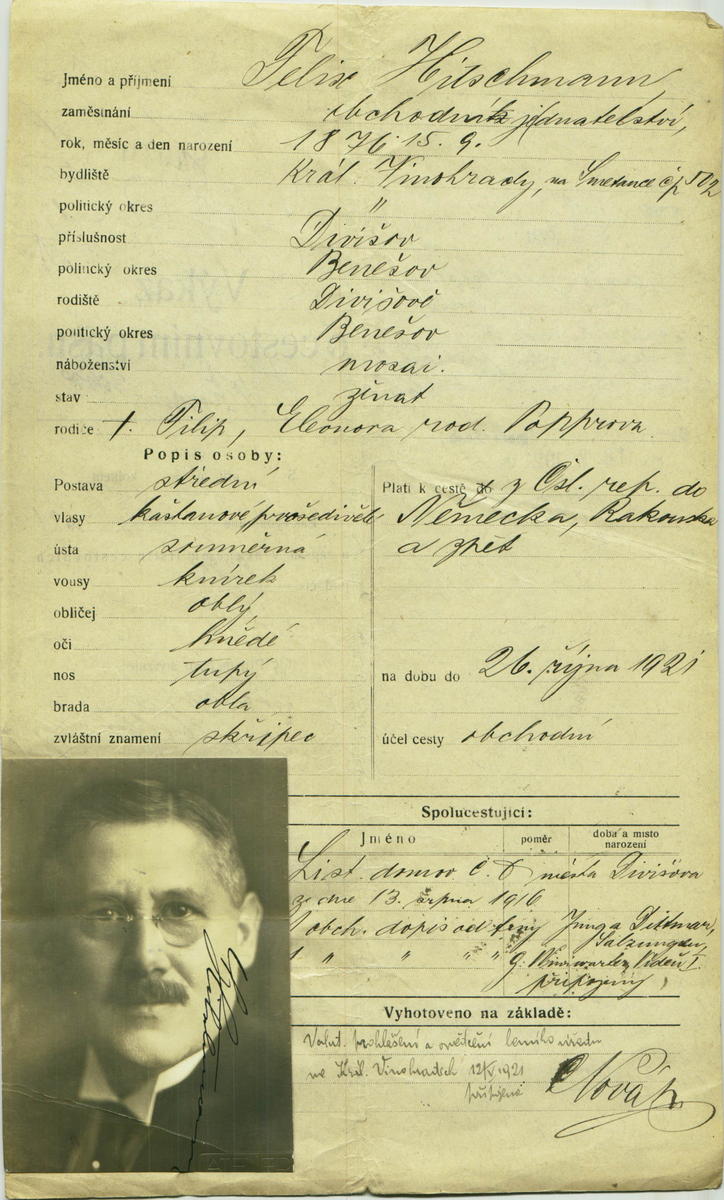 Jméno a příjmení Felix Hitschmann
zaměstnání obchodní jednatelství,
rok, měsíc a den narození 1876 15. 9.
bydliště Král. Vinohrady, na Smetance čp 502
politický okres "
příslušnost Divišov
politický okres Benešov
rodiště Divišově
politický okres Benešov
náboženství mosai.
stav ženat
rodiče †. Filip, Eleonora rod. Popprova
Popis osoby:
Postava střední
vlasy kaštanové prošedivělé
ústa souměrná
vousy knírek
obličej oblý
oči hnědé
nos tupý
brada oblá
zvláštní znamení skřipec
Platí k cestě do z Čsl. rep. do
Německa, Rakouska
a zpět
na dobu do 26. října 1921
účel cesty obchodní
Spolucestující:
Jméno poměr doba a místo narození
List. domov č. 8 města Divišova
ze dne 13. srpna 1916
1 obch. dopis od firmy Jung a Dittmar,
Salzungen,
1 " " " " Vídeň I.
připojeny
Vyhotoveno na základě:
Valut. prohlášení a berního úřadu
na Král. Vinohradech 12/V 1921
Novák